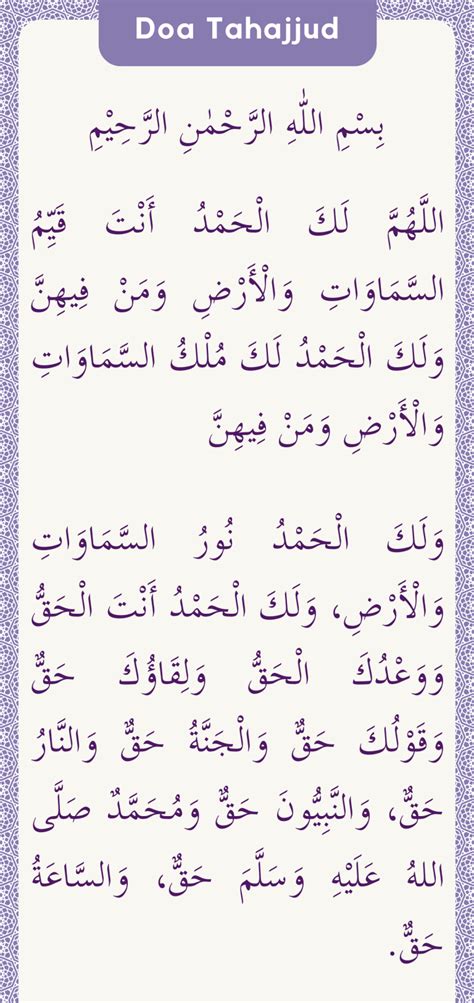 Doa Tahajjud
بِسْمِ اللّٰهِ الرَّحْمٰنِ الرَّحِيْمِ
اللَّهُمَّ لَكَ الْحَمْدُ أَنْتَ قَيِّمُ
السَّمَاوَاتِ وَالْأَرْضِ وَمَنْ فِيهِنَّ
وَلَكَ الْحَمْدُ لَكَ مُلْكُ السَّمَاوَاتِ
وَالْأَرْضِ وَمَنْ فِيهِنَّ
وَلَكَ الْحَمْدُ نُورُ السَّمَاوَاتِ
وَالْأَرْضِ، وَلَكَ الْحَمْدُ أَنْتَ الْحَقُّ
وَوَعْدُكَ الْحَقُّ وَلِقَاؤُكَ حَقٌّ
وَقَوْلُكَ حَقٌّ وَالْجَنَّةُ حَقٌّ وَالنَّارُ
حَقٌّ، وَالنَّبِيُّونَ حَقٌّ وَمُحَمَّدٌ صَلَّى
اللهُ عَلَيْهِ وَسَلَّمَ حَقٌّ، وَالسَّاعَةُ
حَقٌّ.